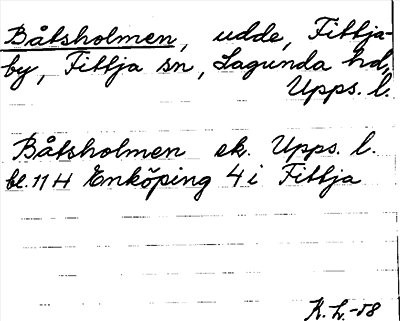 Båtsholmen, udde, Fittja-
by, Fittja sn, Lagunda hd,
Upps. l.
Båtsholmen ek. Upps. l.
bl. 11 H Enköping 4 i Fittja
K. L. -58